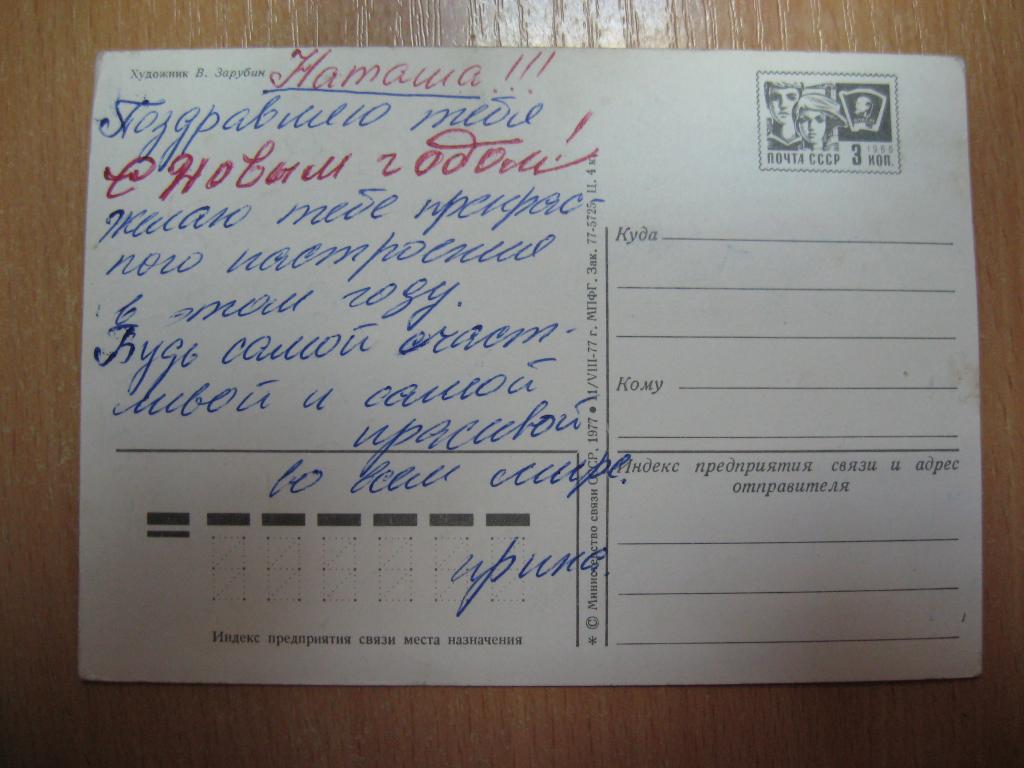 Художник В. Зарубин
Наташа!!!
Поздравляю тебя
С Новым годом!
желаю тебе прекрас-
ного настроения
в этом году.
Будь самой счаст-
ливой и самой
красивой
во всем мире.
Ирина.
Индекс предприятия связи места назначения
* © Министерство связи СССР, 1977 ● 11/VIII-77 г. МПФГ. Зак. 77-5725. Ц. 4 к.
1966
ПОЧТА СССР 3 КОП.
Куда
Кому
Индекс предприятия связи и адрес
отправителя